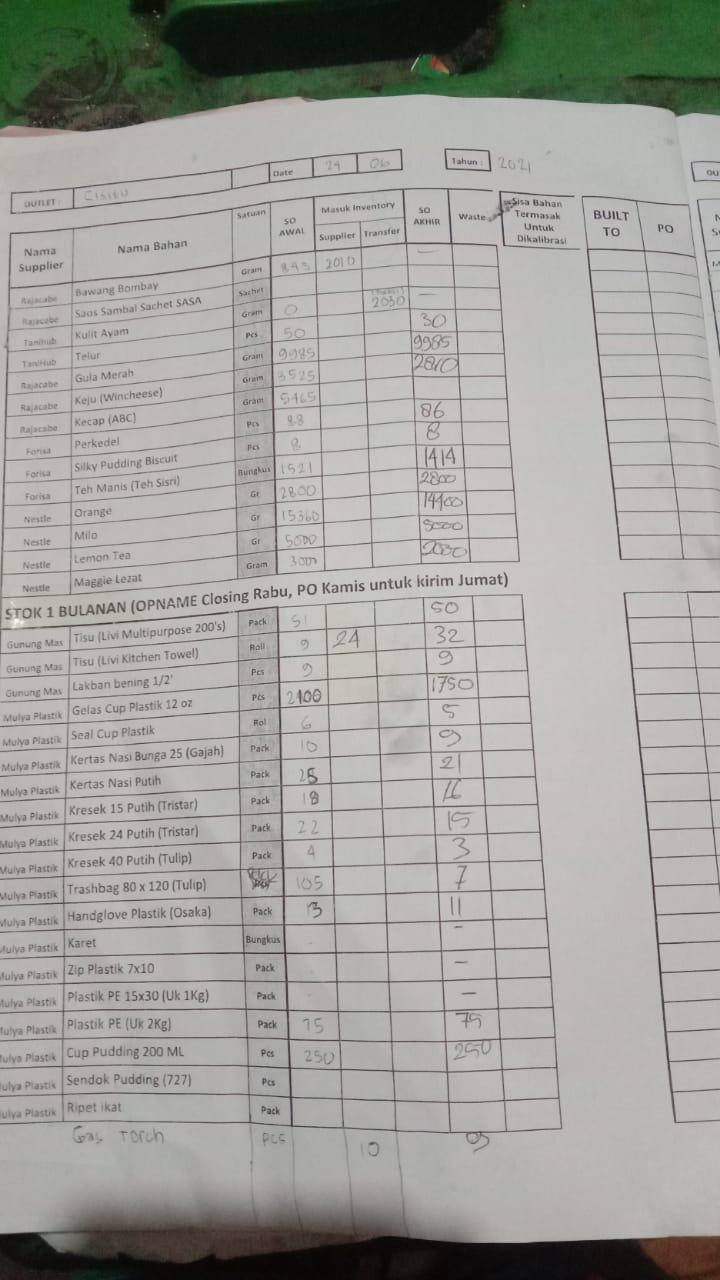 OUTLET : Cisitu Date 24 06 Tahun : 2021
Nama Supplier Nama Bahan Satuan SO AWAL Masuk Inventory Supplier Transfer SO AKHIR Waste Sisa Bahan Termasak Untuk Dikalibrasi BUILT TO PO
Rajacabe Bawang Bombay Gram 845 2010 —
Rajacabe Saos Sambal Sachet SASA Sachet
Tanihub Kulit Ayam Gram 0 2030 —
TaniHub Telur Pcs 50 30
Gula Merah Gram 9985 9985
Rajacabe Keju (Wincheese) Gram 3525 2810
Rajacabe Kecap (ABC) Gram 5465
Forisa Perkedel Pcs 88 86
Forisa Silky Pudding Biscuit Pcs 8 8
Forisa Teh Manis (Teh Sisri) Bungkus 1521 1414
Nestle Orange Gr 2800 2800
Nestle Milo Gr 15360 14400
Nestle Lemon Tea Gr 5000 5000
Nestle Maggie Lezat Gram 3000 2000
STOK 1 BULANAN (OPNAME Closing Rabu, PO Kamis untuk kirim Jumat)
Gunung Mas Tisu (Livi Multipurpose 200's) Pack 51 50
Gunung Mas Tisu (Livi Kitchen Towel) Roll 9 24 32
Gunung Mas Lakban bening 1/2' Pcs 9 9
Mulya Plastik Gelas Cup Plastik 12 oz Pcs 2100 1750
Mulya Plastik Seal Cup Plastik Rol 6 5
Mulya Plastik Kertas Nasi Bunga 25 (Gajah) Pack 10 9
Mulya Plastik Kertas Nasi Putih Pack 25 21
Mulya Plastik Kresek 15 Putih (Tristar) Pack 18 16
Mulya Plastik Kresek 24 Putih (Tristar) Pack 22 15
Mulya Plastik Kresek 40 Putih (Tulip) Pack 4 3
Mulya Plastik Trashbag 80 x 120 (Tulip) 105 7
Mulya Plastik Handglove Plastik (Osaka) Pack 13 11
Mulya Plastik Karet Bungkus - -
Mulya Plastik Zip Plastik 7x10 Pack —
Mulya Plastik Plastik PE 15x30 (Uk 1Kg) Pack - —
Mulya Plastik Plastik PE (Uk 2Kg) Pack 75 75
Mulya Plastik Cup Pudding 200 ML Pcs 250 250
Mulya Plastik Sendok Pudding (727) Pcs
Mulya Plastik Ripet ikat Pack
Gas Torch Pcs 10 9